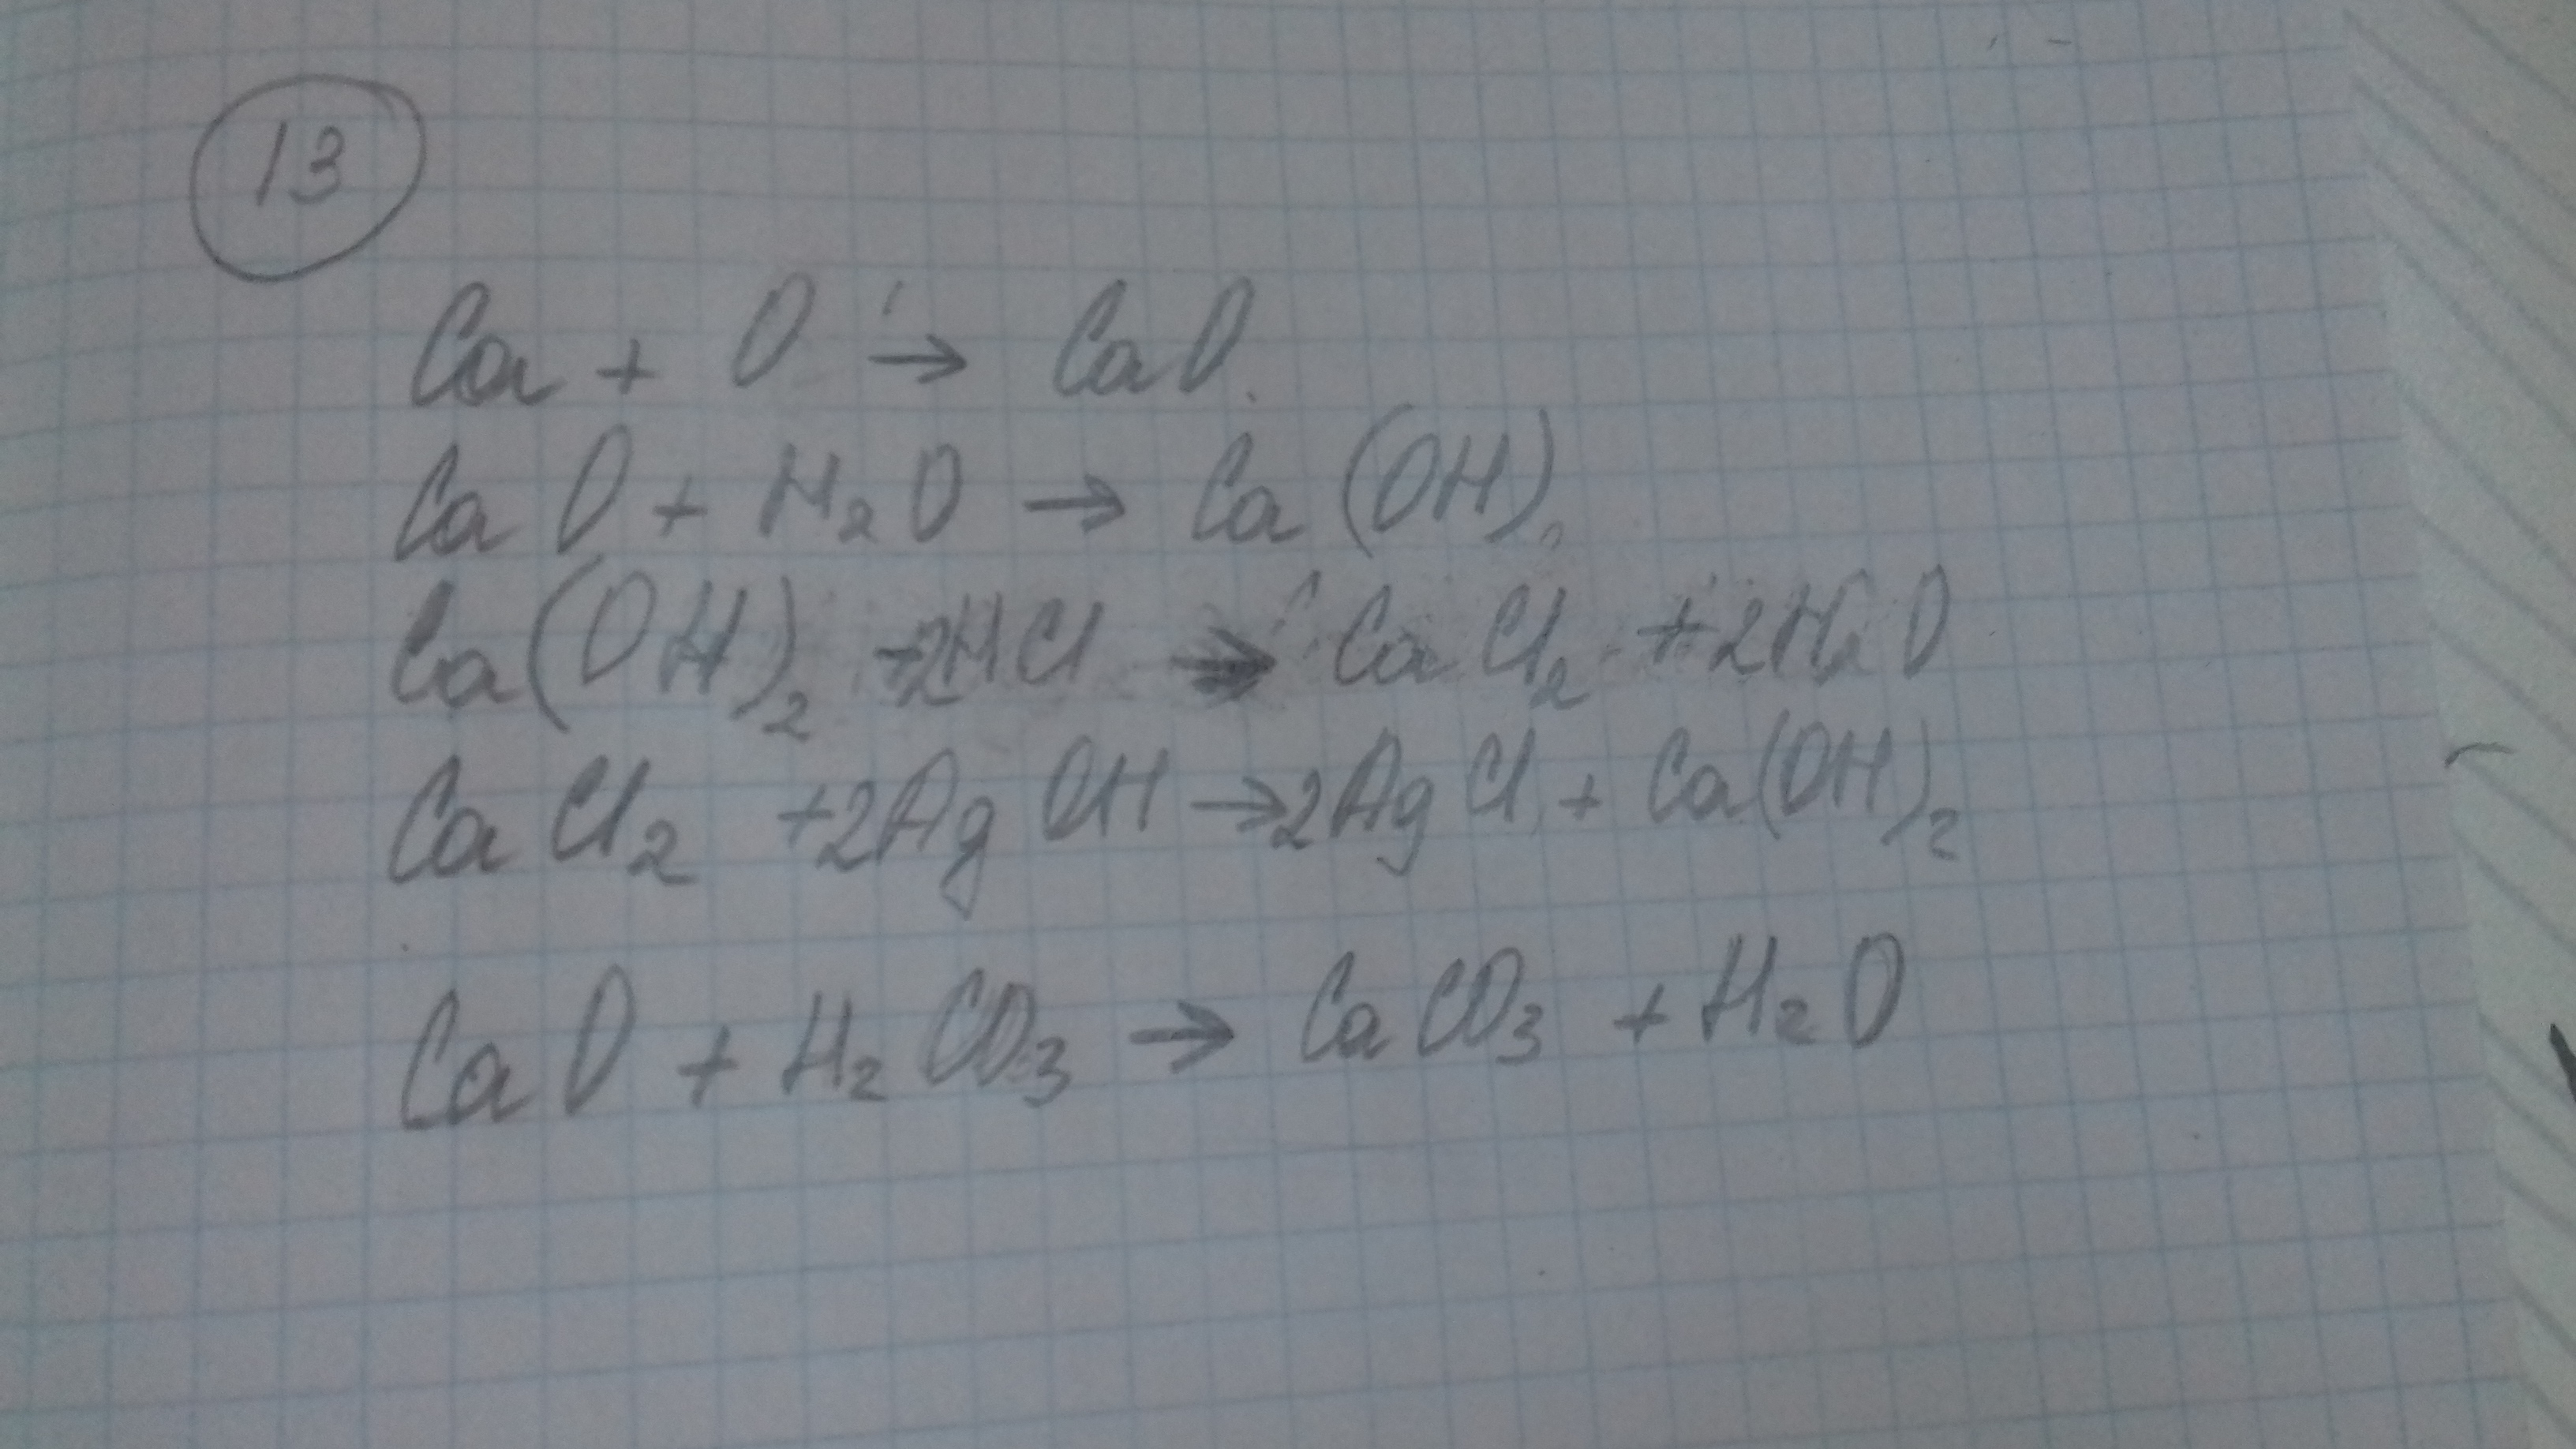 13
Ca + O → CaO
CaO + H₂O → Ca(OH)₂
Ca(OH)₂ + 2HCl → CaCl₂ + 2H₂O
CaCl₂ + 2AgOH → 2AgCl + Ca(OH)₂
CaO + H₂CO₃ → CaCO₃ + H₂O